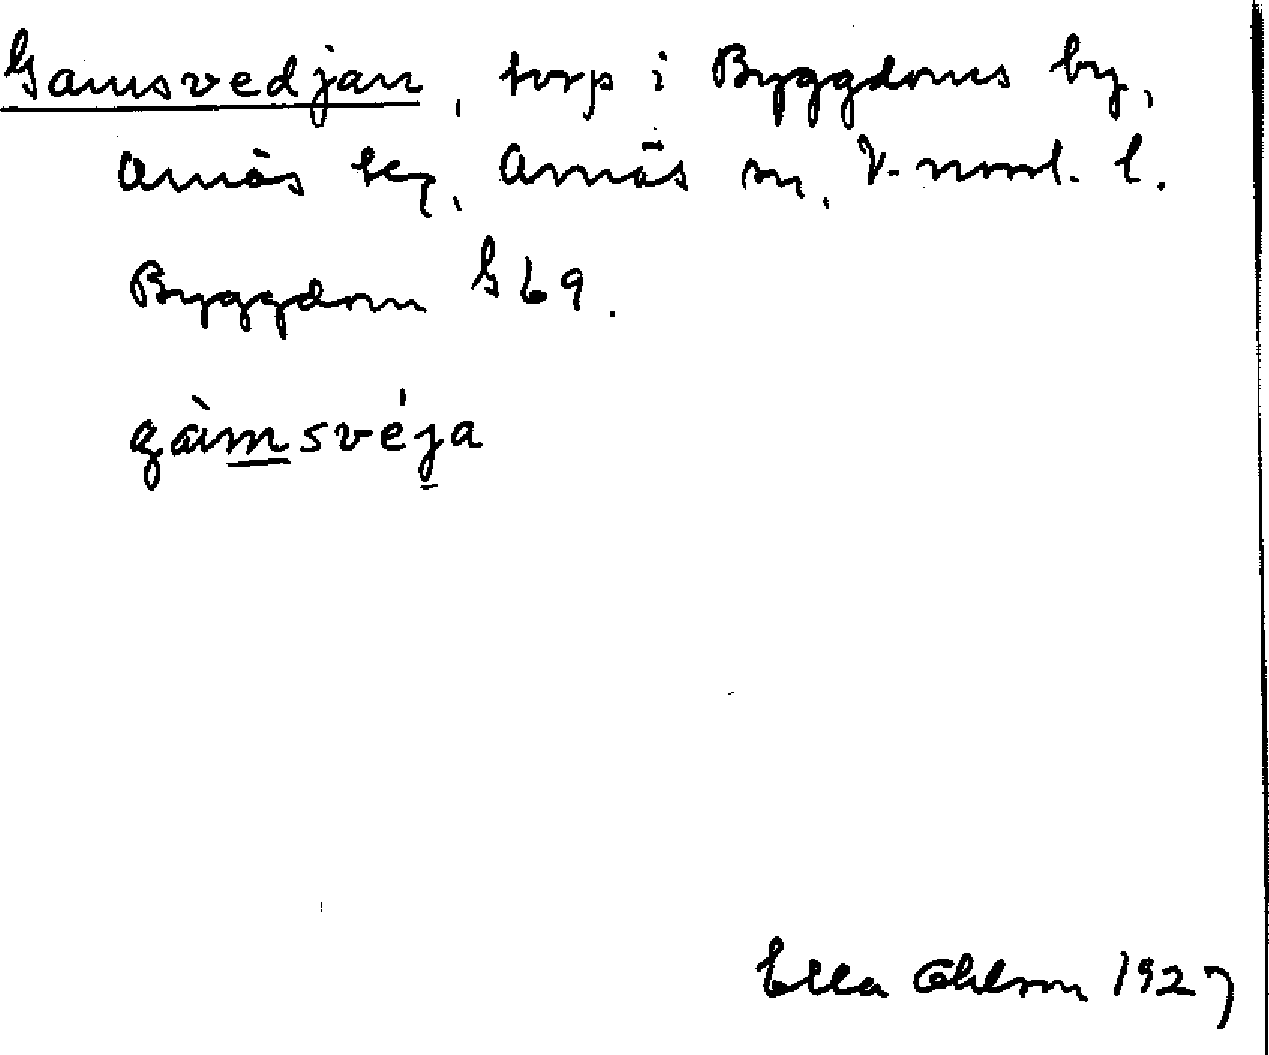 Gamsvedjan, torp i Byggdoms by,
Arnäs tg, Arnäs sn, V-norrl. l.
Byggdom G 69.
gàmsvéja
Ella Ohlson 1927